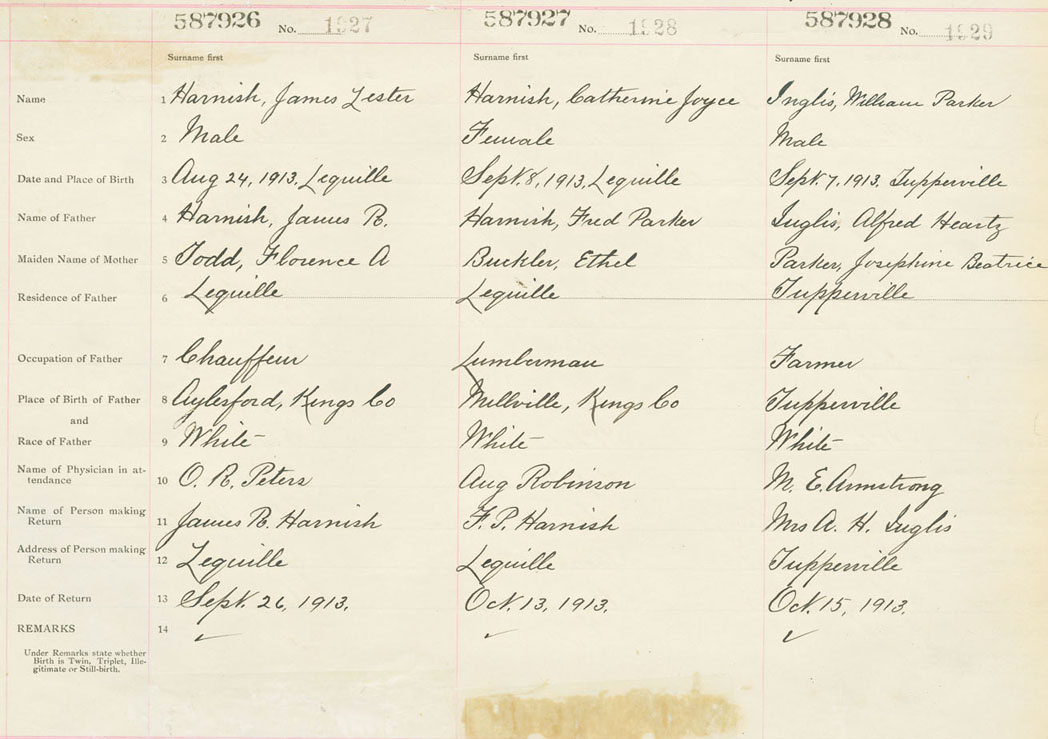 587926 No. 1927 587927 No. 1928 587928 No. 1929
Surname first Surname first Surname first
Name 1 Harnish, James Lester Harnish, Catherine Joyce Inglis, William Parker
Sex 2 Male Female Male
Date and Place of Birth 3 Aug 24, 1913. Lequille Sept. 8, 1913. Lequille Sept. 7, 1913. Tupperville
Name of Father 4 Harnish, James R. Harnish, Fred Parker Inglis, Alfred Heartz
Maiden Name of Mother 5 Todd, Florence A Buckler, Ethel Parker, Josephine Beatrice
Residence of Father 6 Lequille Lequille Tupperville
Occupation of Father 7 Chauffeur Lumberman Farmer
Place of Birth of Father 8 Aylesford, Kings Co Millville, Kings Co Tupperville
and
Race of Father 9 White White White
Name of Physician in at-
tendance 10 O. R. Peters Aug Robinson M. E. Armstrong
Name of Person making
Return 11 James R. Harnish F. P. Harnish Mrs A. H. Inglis
Address of Person making
Return 12 Lequille Lequille Tupperville
Date of Return 13 Sept. 26, 1913. Oct. 13, 1913. Oct. 15, 1913.
REMARKS 14 ✓ ✓ ✓
Under Remarks state whether
Birth is Twin, Triplet, Ille-
gitimate or Still-birth.